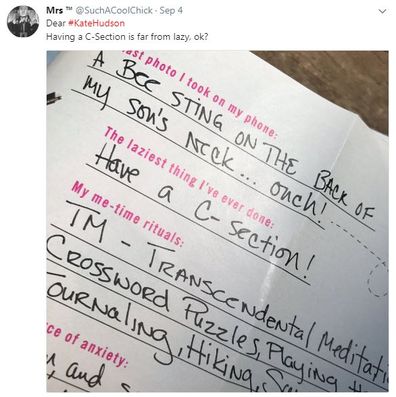 Mrs ™ @SuchACoolChick · Sep 4
Dear #KateHudson
Having a C-Section is far from lazy, ok?
ast photo I took on my phone:
A BEE STING ON THE BACK OF
MY SON'S NECK... OUCH!
The laziest thing I've ever done:
Have a C-Section!
My me-time rituals:
TM - TRANSCENDENTAL Meditati
CROSSWORD PUZZLES, Playing
JOURNALING, Hiking,
ce of anxiety:
and